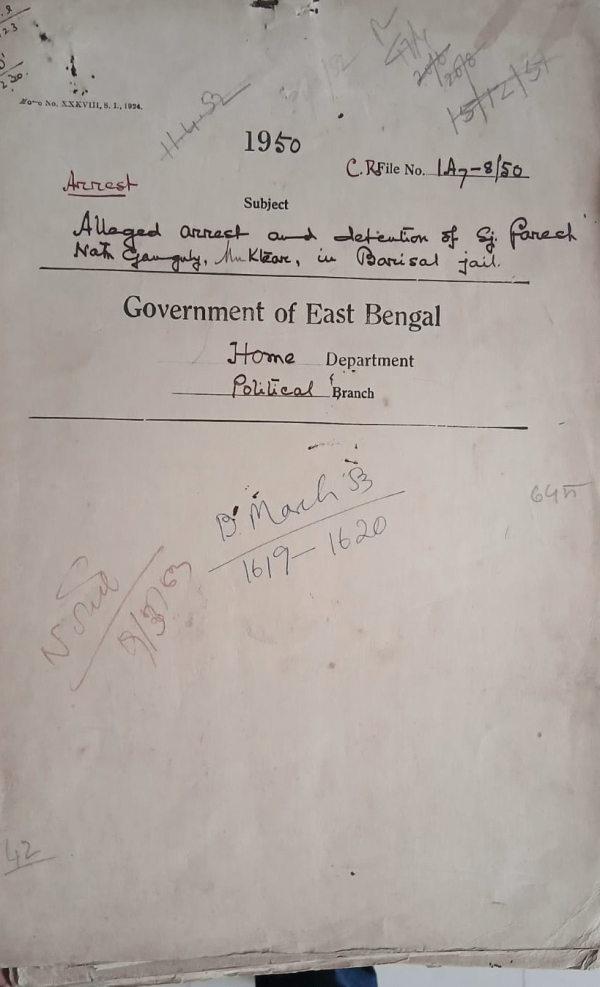 Form No. XXXVIII, S. I., 1924.
11-4-52
15/12/51
1950
C.R. File No. 1A7-8/50
Arrest
Subject
Alleged arrest and detention of Sj. Paresh
Nath Ganguly, Muktear, in Barisal jail.
Government of East Bengal
Home Department
Political Branch
B. March 53
1619-1620
42